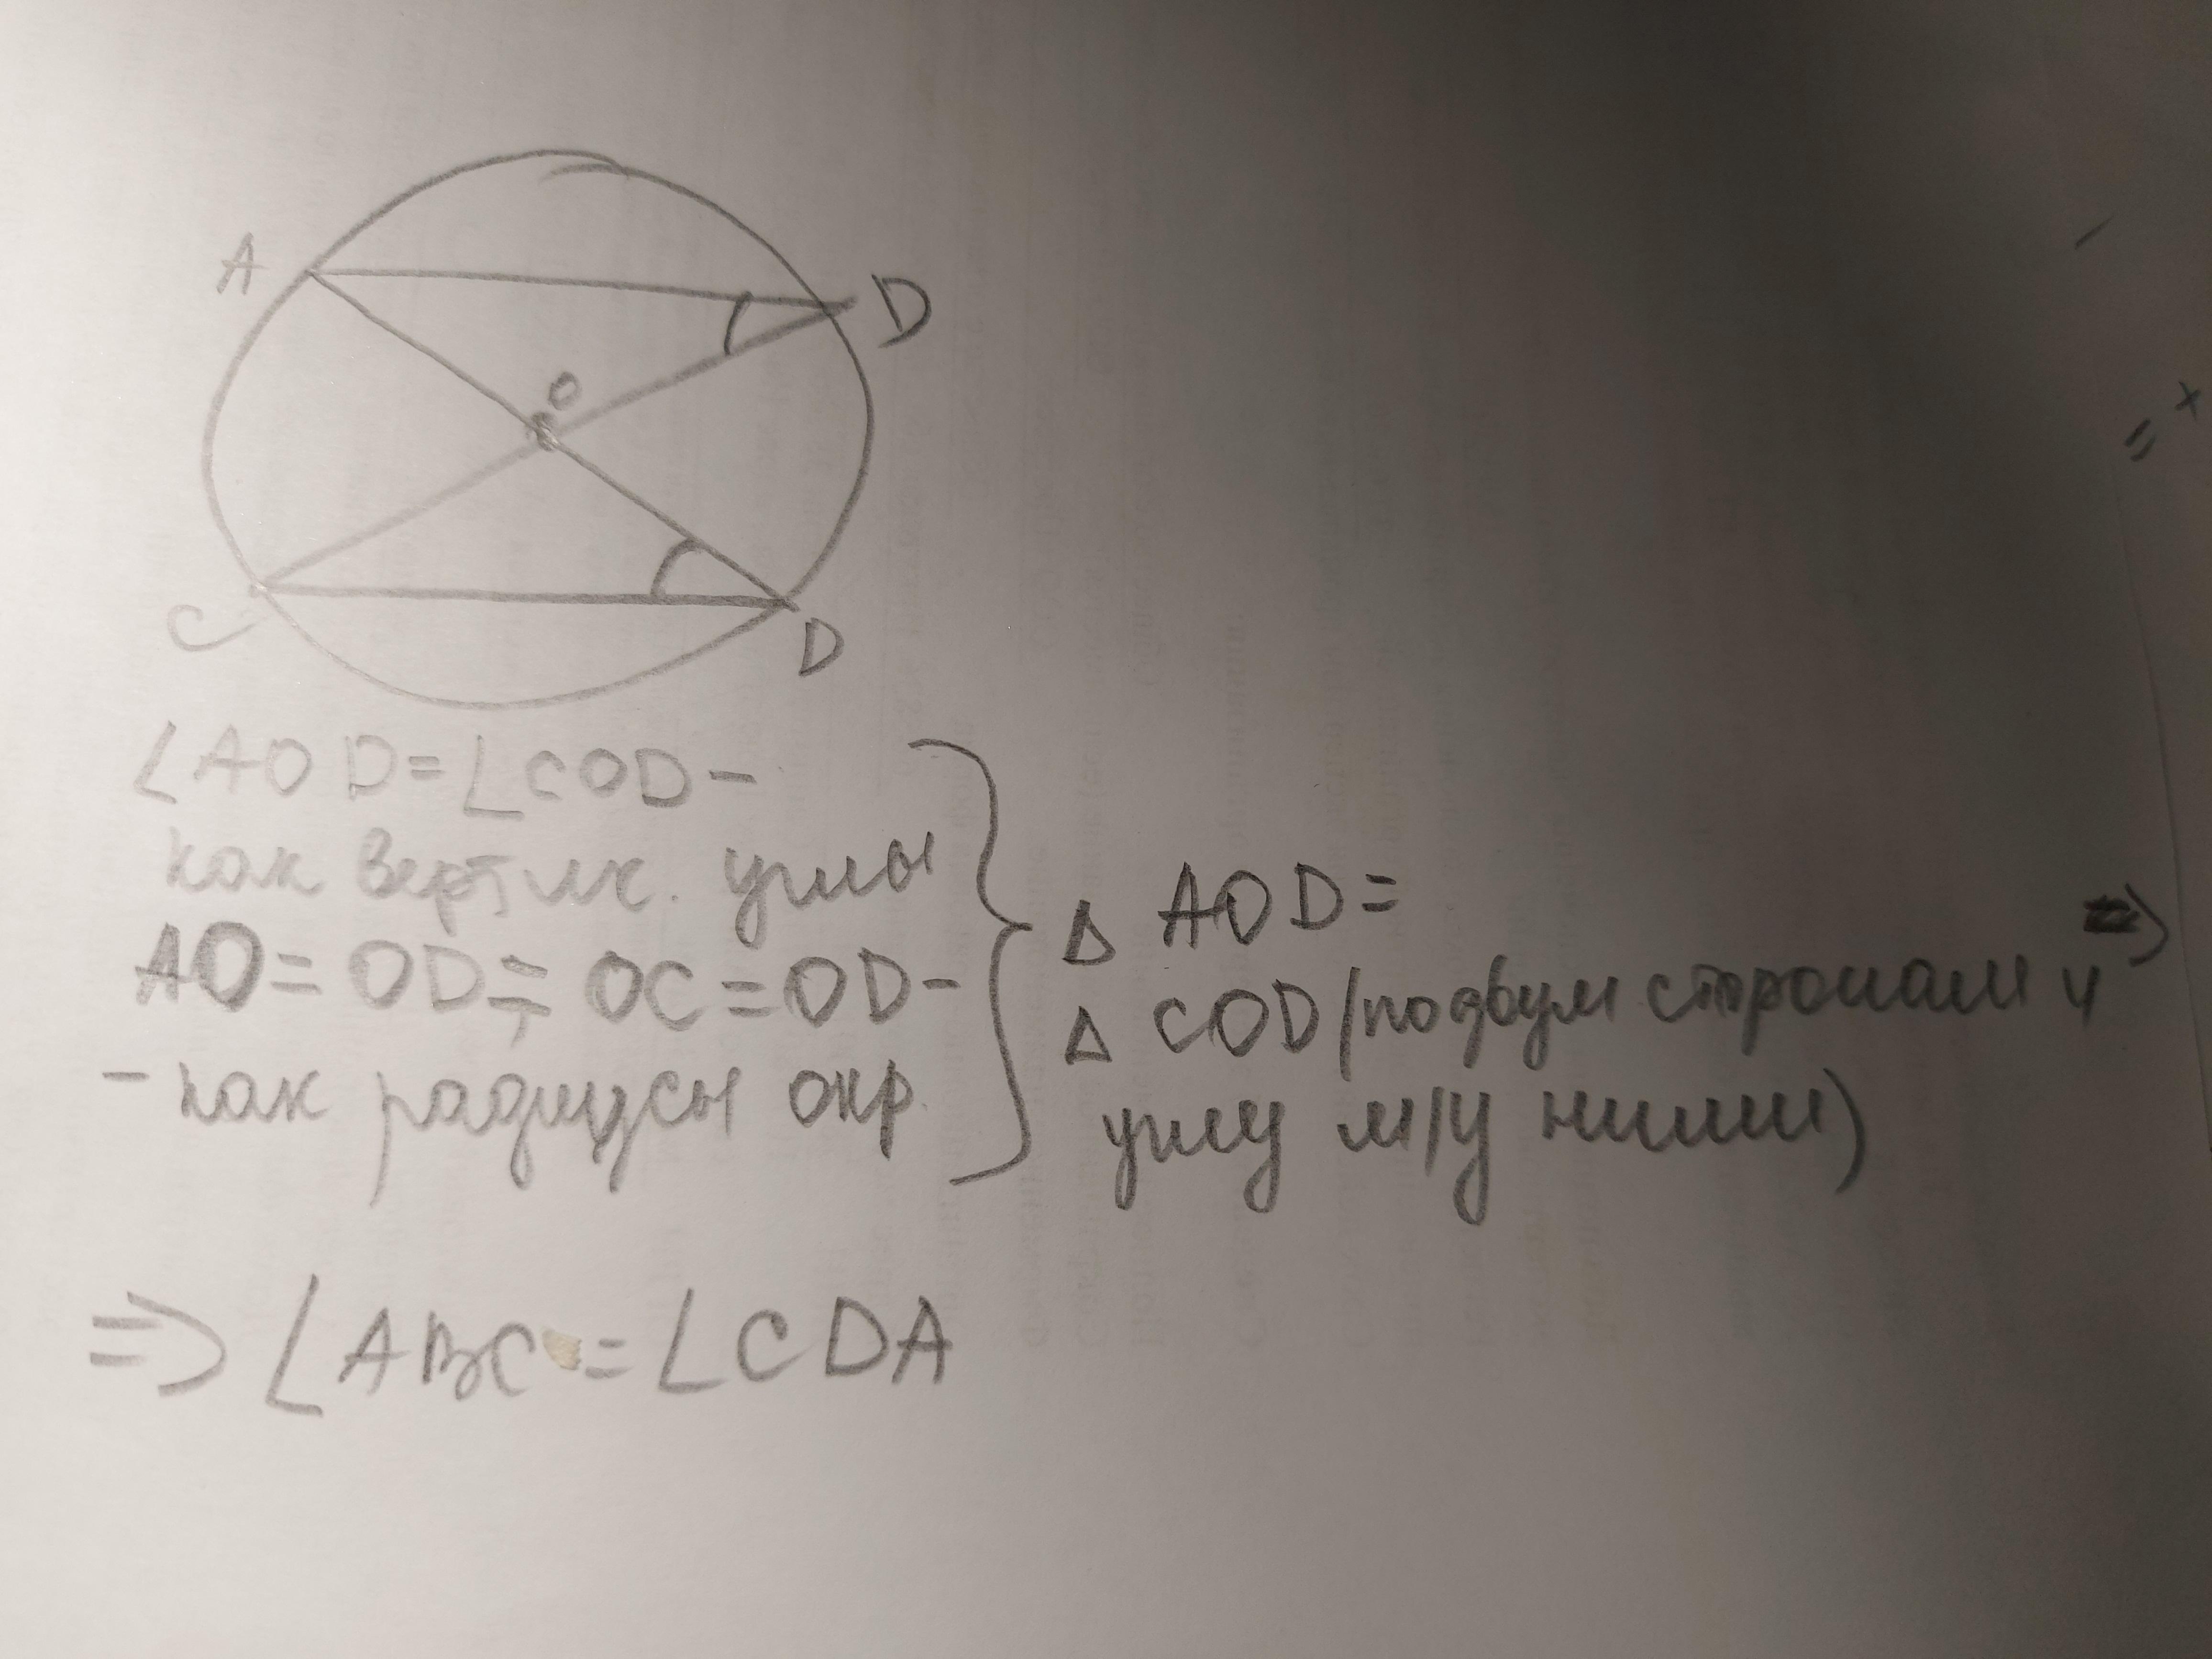 A
D
O
C
D
∠AOD=∠COD-
как вертик. углы
AO=OD=OC=OD-
- как радиусы окр.
Δ AOD=
Δ COD(по двум сторонам и =>
углу м/у ними)
=> ∠ABC=∠CDA
= x